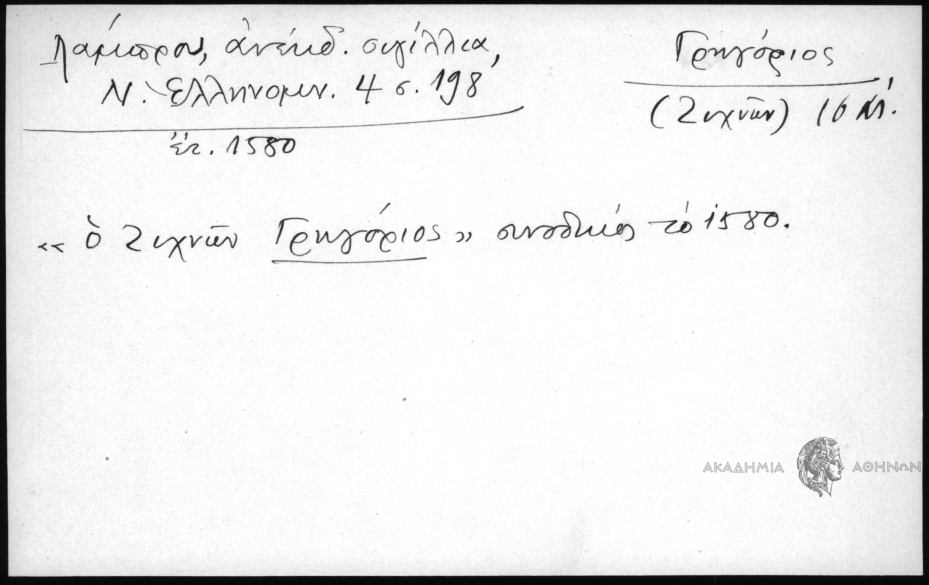 Λάμπρου, ἀνέκδ. σιγίλλια,
Ν. Ἑλληνομν. 4 σ. 198
ἔτ. 1580
Γρηγόριος
(Ζιχνῶν) 16 αἰ.
«ὁ Ζιχνῶν Γρηγόριος» συνοδικός τό 1580.
ΑΚΑΔΗΜΙΑ ΑΘΗΝΩΝ